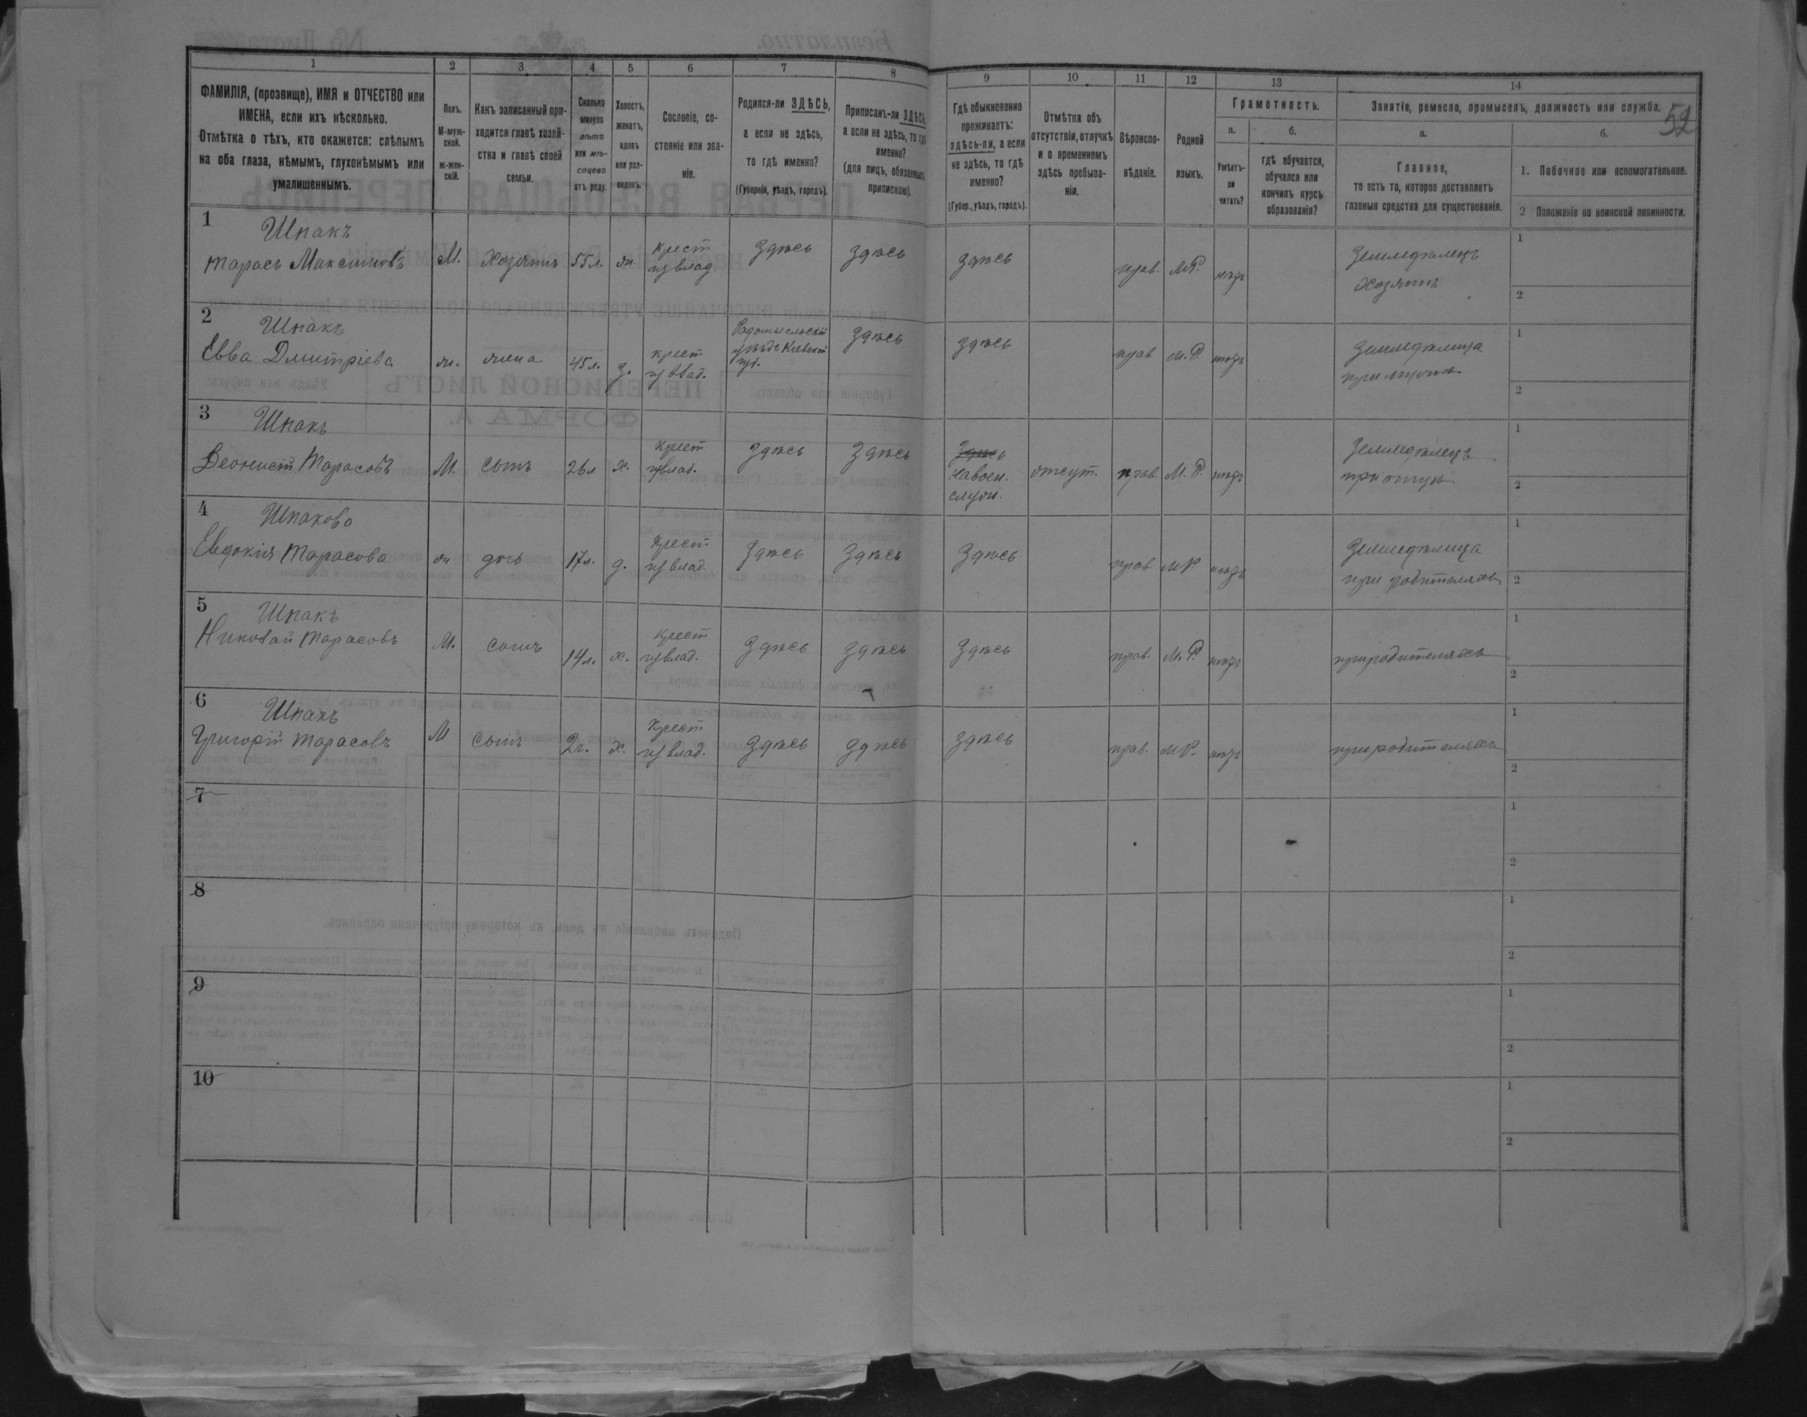 52
1 2 3 4 5 6 7 8 9 10 11 12 13 14
ФАМИЛІЯ, (прозвище), ИМЯ и ОТЧЕСТВО или
ИМЕНА, если ихъ нѣсколько.
Отмѣтка о тѣхъ, кто окажется: слѣпымъ
на оба глаза, нѣмымъ, глухонѣмымъ или
умалишеннымъ.
Полъ.
М-муж-
ской.
ж-жен-
скій.
Какъ записанный при-
ходится главѣ хозяй-
ства и главѣ своей
семьи.
Сколько
минуло
лѣтъ
или мѣ-
сяцевъ
отъ роду.
Холостъ,
женатъ,
вдовъ
или раз-
веденъ.
Сословіе, со-
стояніе или зва-
ніе.
Родился-ли ЗДѢСЬ,
а если не здѣсь,
то гдѣ именно?
(Губернія, уѣздъ, городъ).
Приписанъ-ли ЗДѢСЬ,
а если не здѣсь, то гдѣ
именно?
(для лицъ, обязанныхъ
припискою).
Гдѣ обыкновенно
проживаетъ:
здѣсь-ли, а если
не здѣсь, то гдѣ
именно?
(Губер., уѣздъ, городъ).
Отмѣтка объ
отсутствіи, отлучкѣ
и о временномъ
здѣсь пребыва-
ніи.
Вѣроиспо-
вѣданіе.
Родной
языкъ.
Грамотность.
а.
Умѣетъ-
ли
читать?
б.
гдѣ обучается,
обучался или
кончилъ курсъ
образованія?
Занятіе, ремесло, промыселъ, должность или служба.
а.
Главное,
то есть то, которое доставляетъ
главныя средства для существованія.
б.
1. Побочное или вспомогательное.
2 Положеніе по воинской повинности.
1 Шпакъ
Тарасъ Максимовъ М. хозяинъ 55 л. ж крест из влад здѣсь здѣсь здѣсь прав. М.Р. нѣтъ Земледѣлецъ хозяинъ 1 2
2 Шпакъ
Евва Дмитріева ж. жена 45 л. з. крест из влад. Радомысльскій уѣздъ Кіевской губ. здѣсь здѣсь прав М.Р. нѣтъ Земледѣлица при мужѣ 1 2
3 Шпакъ
Леонтій Тарасовъ М. сынъ 26 л х. крест из влад. здѣсь здѣсь Здѣсь На воен. служ. отсут. прав М.Р. нѣтъ Земледѣлецъ при отцѣ 1 2
4 Шпакова
Евдокія Тарасова ж дочь 17 л. д. крест из влад. здѣсь здѣсь здѣсь прав М.Р нѣтъ Земледѣлица при родителяхъ 1 2
5 Шпакъ
Николай Тарасовъ М. сынъ 14 л. х. крест из влад. здѣсь здѣсь здѣсь прав. М.Р. нѣтъ при родителяхъ 1 2
6 Шпакъ
Григорій Тарасовъ М сынъ 2 г. х. крест из влад. здѣсь здѣсь здѣсь прав. М.Р. нѣтъ при родителяхъ 1 2
7 1 2
8 1 2
9 1 2
10 1 2